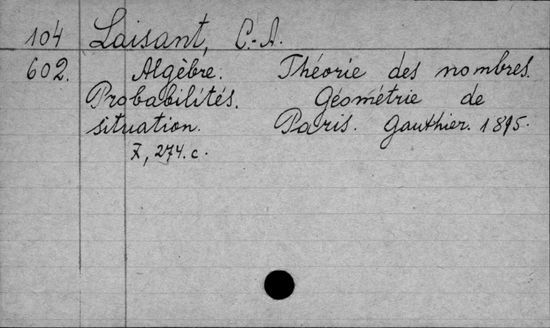 104 Laisant, C.-A.
602. Algèbre. Théorie des nombres.
Probabilités. Géométrie de
situation. Paris. Gauthier. 1895.
X, 274. c.